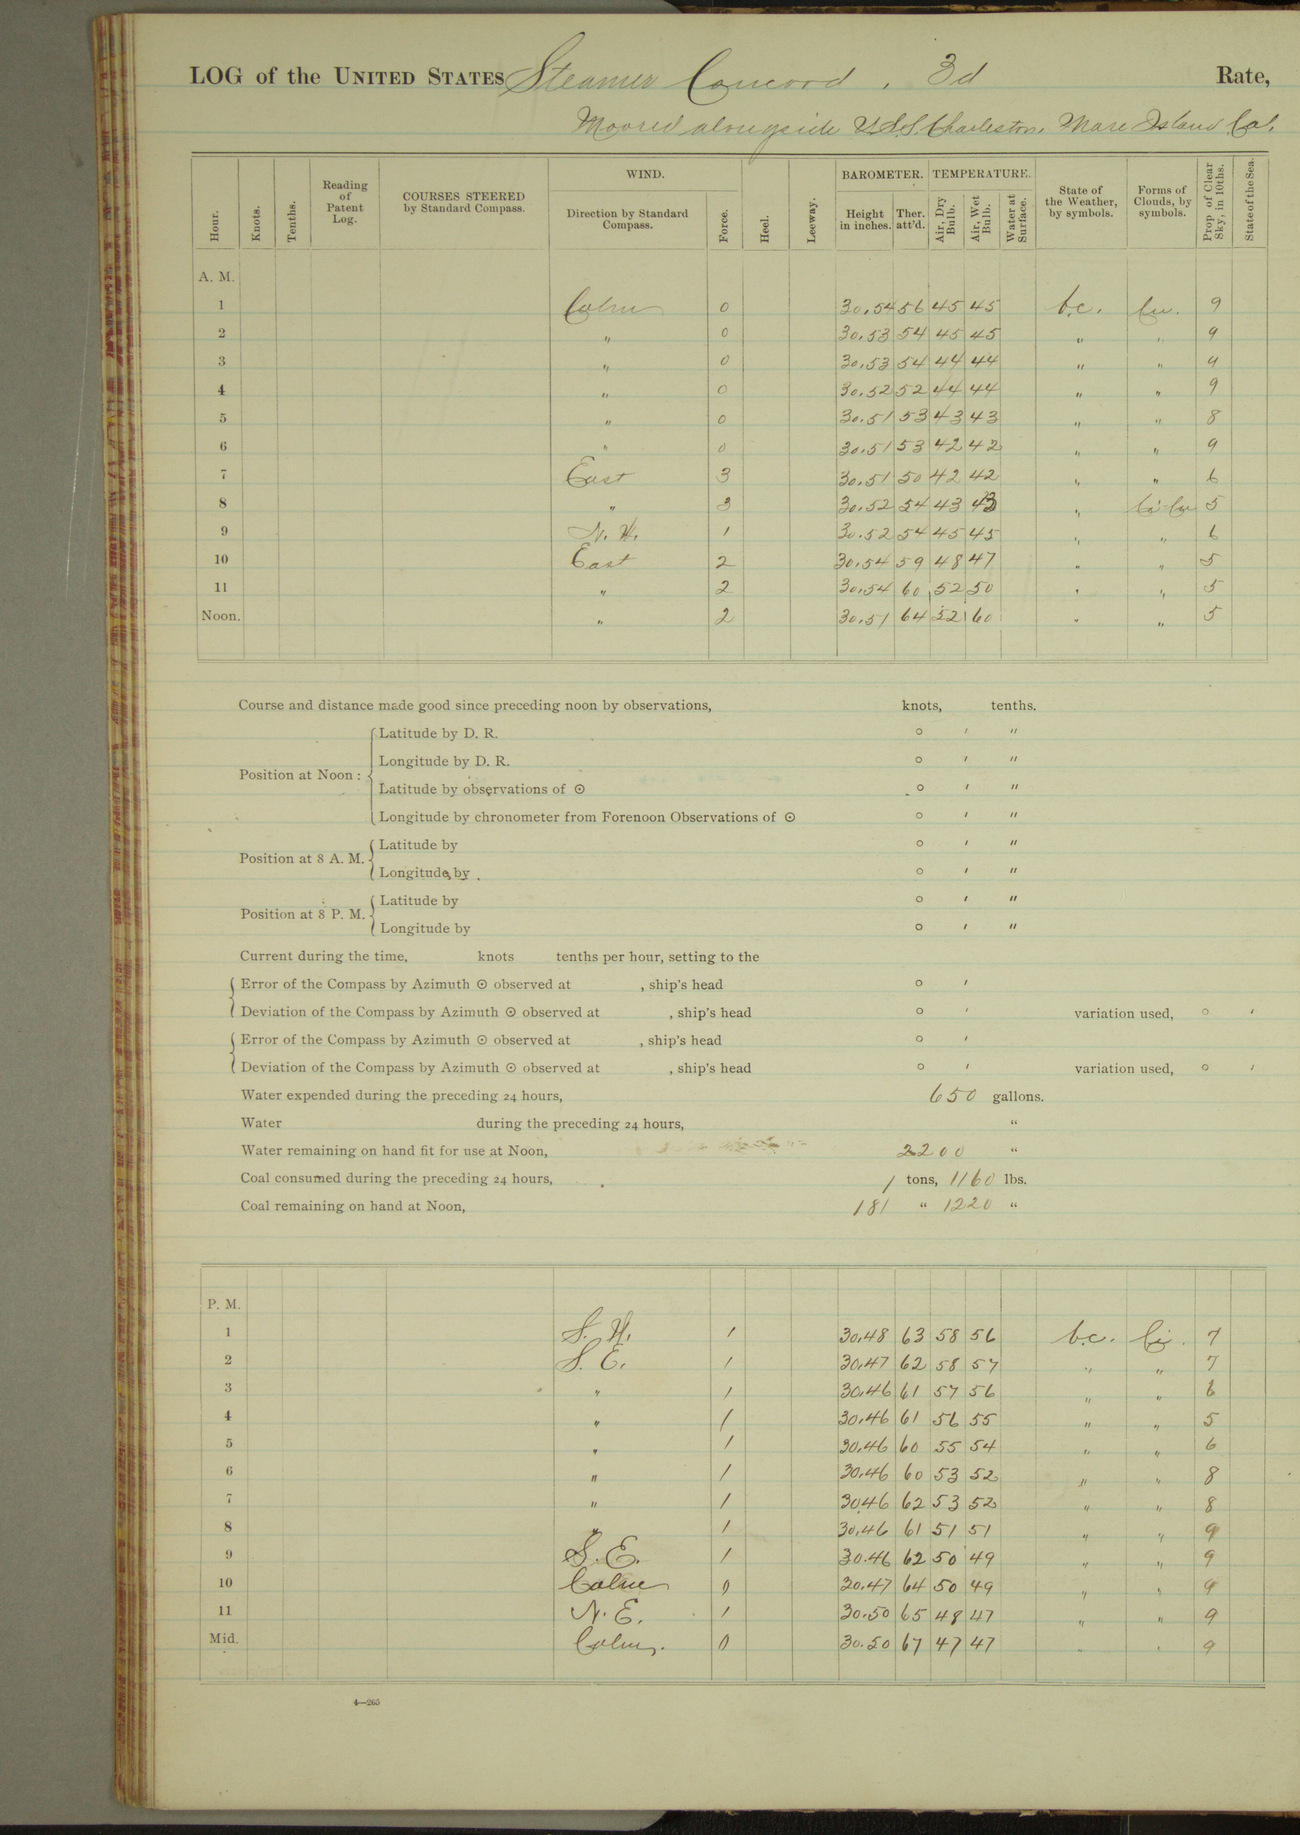 LOG of the UNITED STATES Steamer Concord, 3d Rate,
Moored alongside U.S.S. Charleston, Mare Island Cal.
Hour. Knots. Tenths. Reading of Patent Log. COURSES STEERED by Standard Compass. WIND. Direction by Standard Compass. Force. Heel. Leeway. BAROMETER. Height in inches. Ther. att'd. TEMPERATURE. Air, Dry Bulb. Air, Wet Bulb. Water at Surface. State of the Weather, by symbols. Forms of Clouds, by symbols. Prop. of Clear Sky, in 10ths. State of the Sea.
A. M.
1 Calm 0 30.54 56 45 45 b.c. Cu. 9
2 " 0 30.53 54 45 45 " " 9
3 " 0 30.53 54 44 44 " " 9
4 " 0 30.52 52 44 44 " " 9
5 " 0 30.51 53 43 43 " " 8
6 " 0 30.51 53 42 42 " " 9
7 East 3 30.51 50 42 42 " " 6
8 " 3 30.52 54 43 43 " Ci-Cu 5
9 N.W. 1 30.52 54 45 45 " " 6
10 East 2 30.54 59 48 47 " " 5
11 " 2 30.54 60 52 50 " " 5
Noon. " 2 30.51 64 52 60 " " 5
Course and distance made good since preceding noon by observations, knots, tenths.
Position at Noon:
Latitude by D. R. ° ′ ″
Longitude by D. R. ° ′ ″
Latitude by observations of ⊙ ° ′ ″
Longitude by chronometer from Forenoon Observations of ⊙ ° ′ ″
Position at 8 A. M.
Latitude by ° ′ ″
Longitude by ° ′ ″
Position at 8 P. M.
Latitude by ° ′ ″
Longitude by ° ′ ″
Current during the time, knots tenths per hour, setting to the
Error of the Compass by Azimuth ⊙ observed at , ship's head ° ′
Deviation of the Compass by Azimuth ⊙ observed at , ship's head ° ′ variation used, ° ′
Error of the Compass by Azimuth ⊙ observed at , ship's head ° ′
Deviation of the Compass by Azimuth ⊙ observed at , ship's head ° ′ variation used, ° ′
Water expended during the preceding 24 hours, 650 gallons.
Water during the preceding 24 hours, "
Water remaining on hand fit for use at Noon, 2200 "
Coal consumed during the preceding 24 hours, 1 tons, 1160 lbs.
Coal remaining on hand at Noon, 181 " 1220 "
P. M.
1 S.W. 1 30.48 63 58 56 b.c. Ci. 7
2 S.E. 1 30.47 62 58 57 " " 7
3 " 1 30.46 61 57 56 " " 6
4 " 1 30.46 61 56 55 " " 5
5 " 1 30.46 60 55 54 " " 6
6 " 1 30.46 60 53 52 " " 8
7 " 1 30.46 62 53 52 " " 8
8 " 1 30.46 61 51 51 " " 9
9 S.E. 1 30.46 62 50 49 " " 9
10 Calm 0 30.47 64 50 49 " " 9
11 N.E. 1 30.50 65 48 47 " " 9
Mid. Calm. 0 30.50 67 47 47 " " 9
4—265